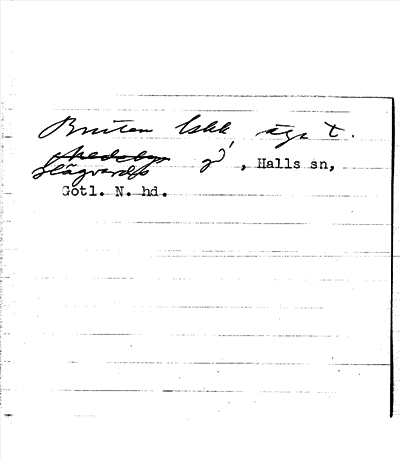 Bruten lokk äga t.
Hägvards gd, Halls sn,
Gotl. N. hd.